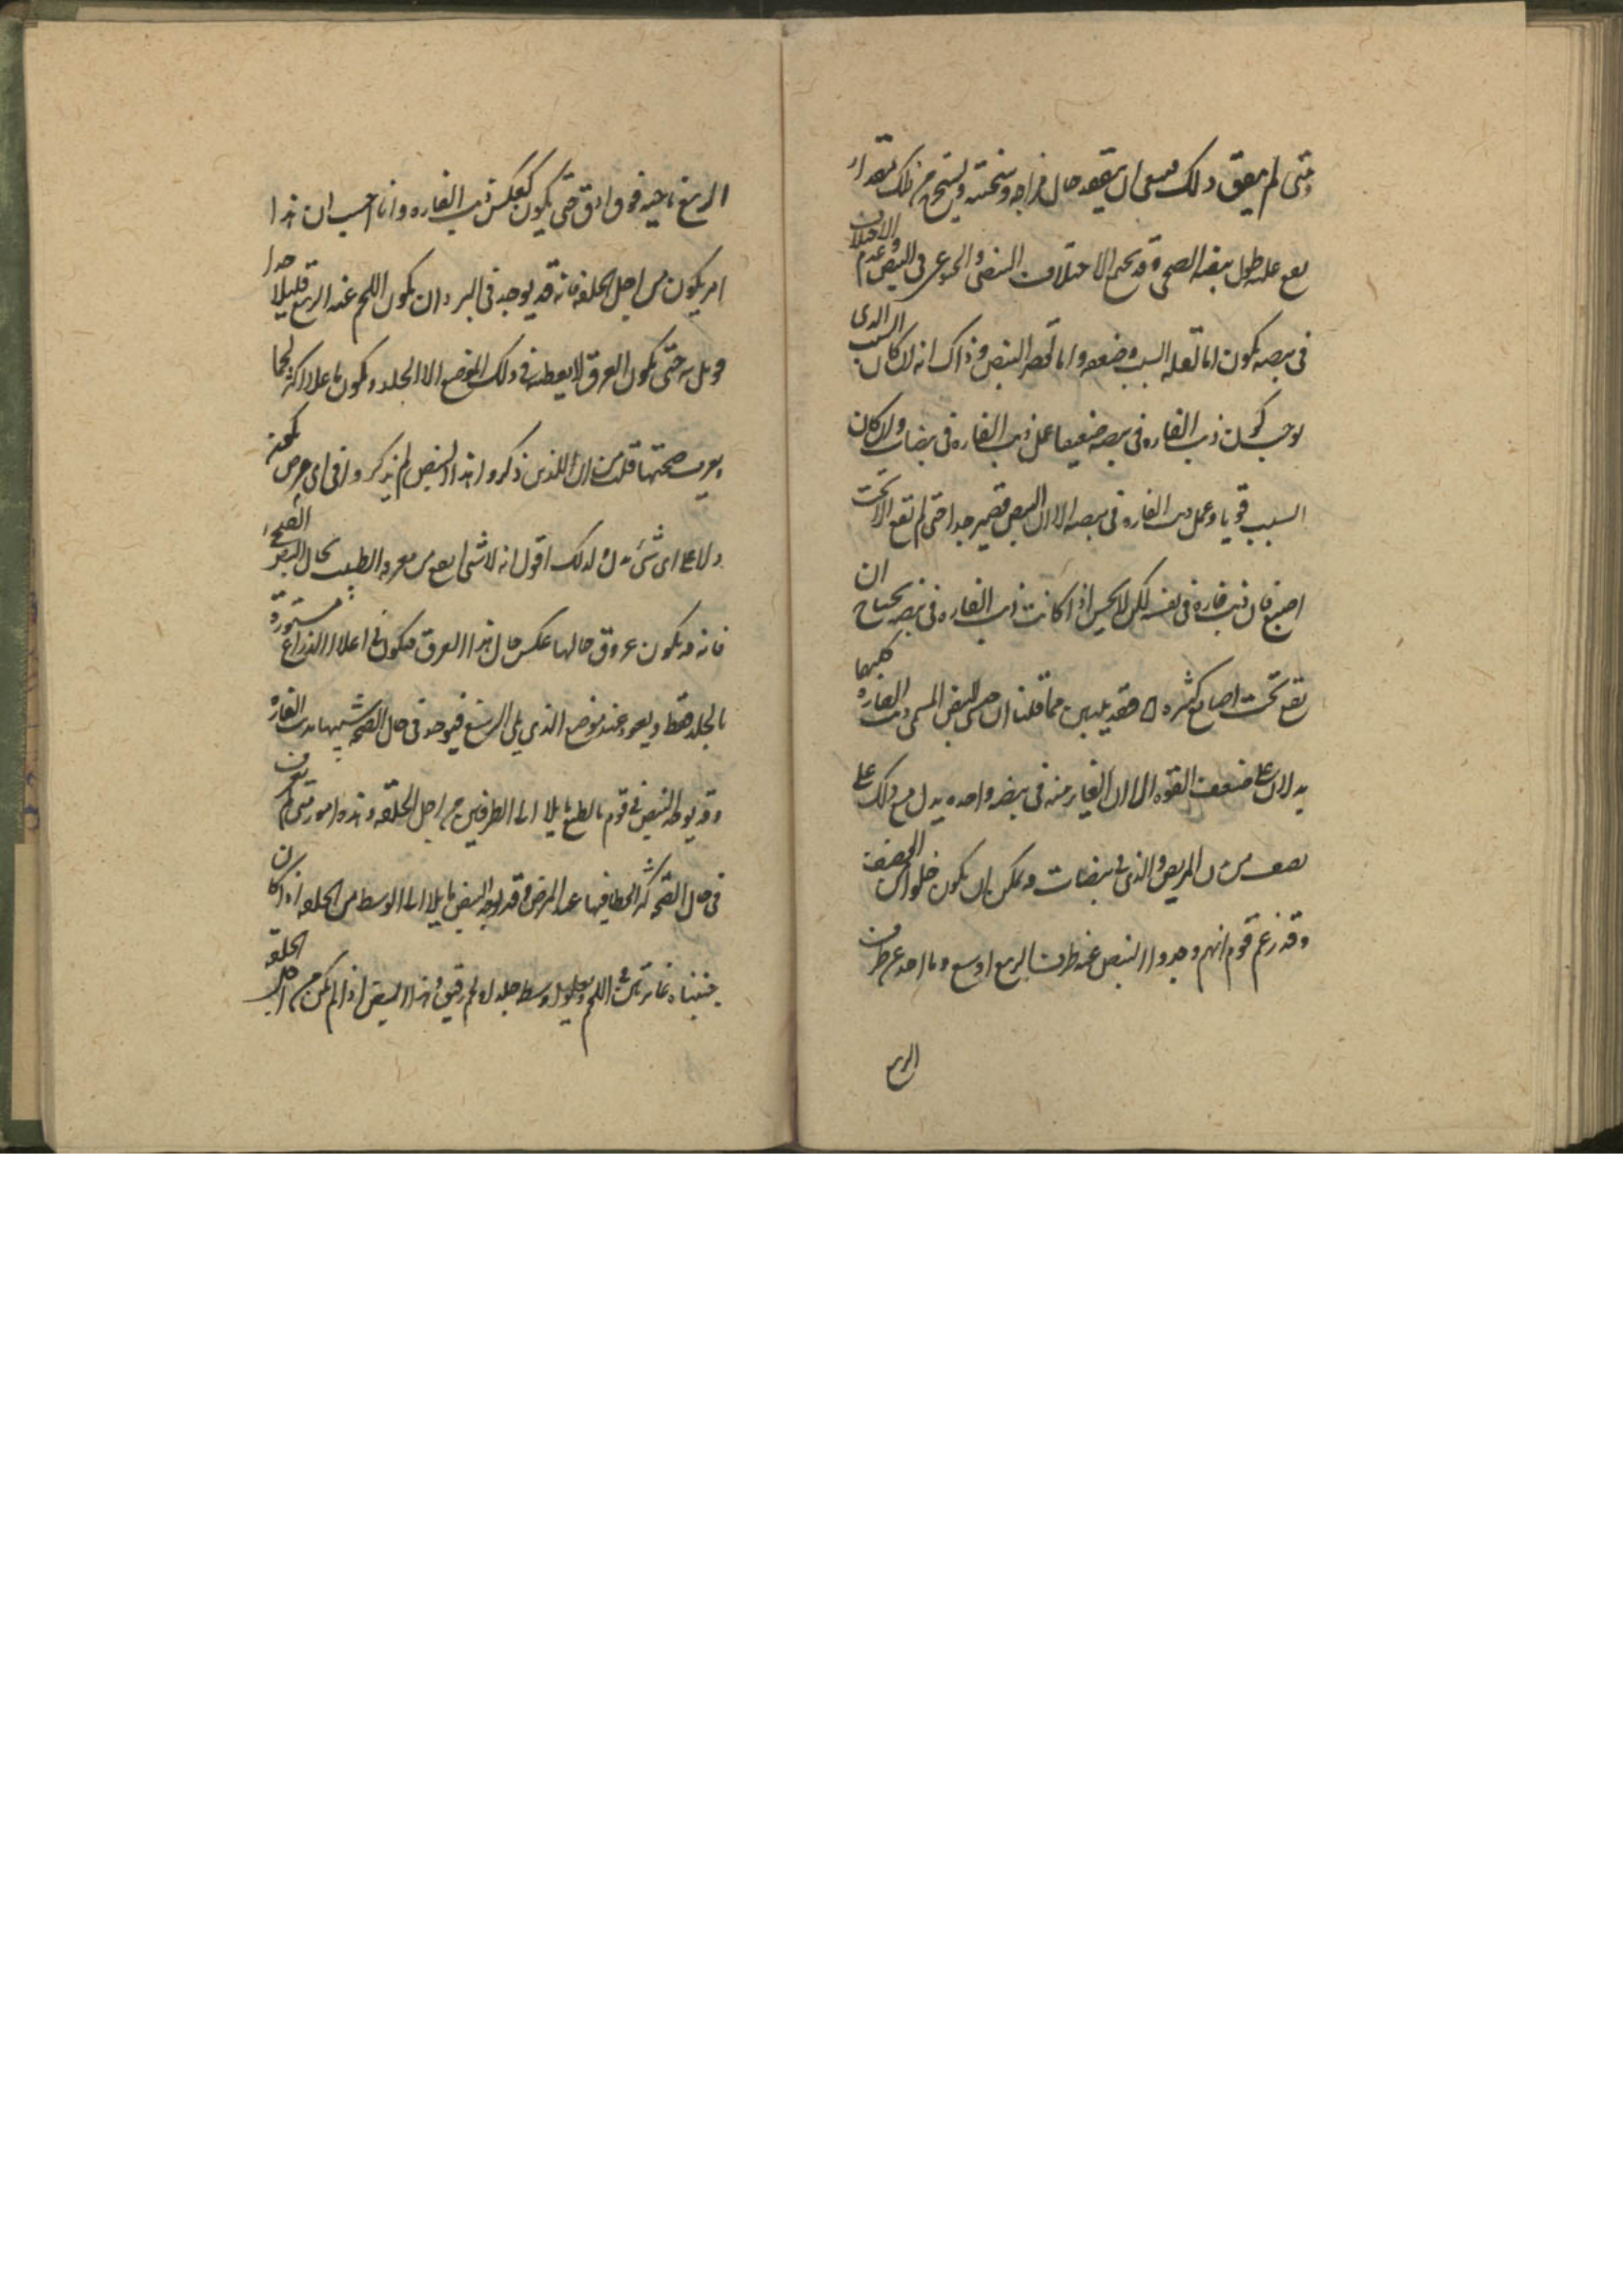 ومتى لم يتفق ذلك فينبغى ان يتفقد حال مزاجه وسحنته ويستخرج من ذلك مقدار
يقع عليه طول نبضه الصحى وقد يجتمع الاختلاف النبضى والجوعى فى النبض وعدم الاختلاف
فى نبضه يكون اما لقله السبب وضعفه واما لقصر النبض وذاك انه ان كان السبب الذى
يوجب كون ذنب الفاره فى نبضه ضعيفا عمل ذنب الفاره فى نبضات وان كان
السبب قويا وعمل ذنب الفاره فى نبضه الا ان النبض قصير جدا حتى لم تقع الا تحت
اصبع فان ذنب فاره فى نفسه لكن لا يحس اذا كانت ذنب الفاره فى نبضه يحتاج ان
تقع تحت اصابع كثيره فقد تبين مما قلنا ان النبض المسمى ذنب الفاره كليهما
يدلان على ضعف القوه الا ان الغاير منه فى نبضه واحده يدل مع ذلك على
من المريض والذى فى نبضات وقد يمكن ان يكون خلوا من الضعف
وقد زعم قوم انهم وجدوا النبض عند طرف الرسغ اوسع وما اخذ عن طرف
الرسغ
الرسغ ناحيه فوق ادق حتى يكون كعكس ذنب الفاره وانا احسب ان هذا
امر يكون من اجل الخلقه فانه قد يوجد فى البر دان يكون اللحم عند الرسغ قليلا جدا
حتى يكون العرق لا يغطيه فى ذلك الموضع الا الجلد ويكون ما علا اكثر لحما
صحتها قلت من ان اللذين ذكروا هذا النبض لم يذكروا فى اى مرض
ولا على اى شئ دل ولذلك اقول انه لا شئ انفع من معرفه الطبيب بحال النبض الصحى
فانه قد يكون عروق حالها عكس حال هذا العرق فيكون فى اعلا الذراع مستوره
بالجلد فقط ويغور عند موضع الذى يلى الرسغ فيوجد فى حال الصحه شبيها بذنب الفاره
وقد يوجد النبض فى قوم بالطبع مايلا الى الطرفين من اجل الخلقه وهذه امور متى لم تعرف
فى حال الصحه كثر الخطا فيها عند المرض وقد يوجد النبض مايلا الى الوسط من الخلقه اذا كان
جنبتاه غايرتين فى اللحم ويعلو وسطه جلد او لحم رقيق وهذا النبض اذا لم يكن من اجل الخلقه